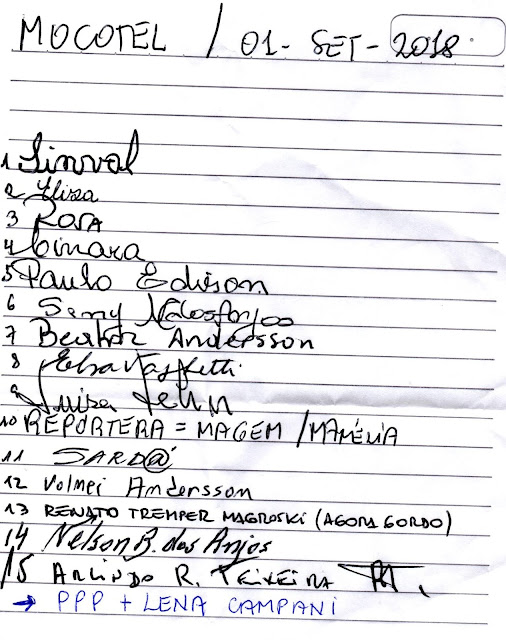 MOCOTEL / 01- SET - 2018
1 Sinval
2 Elisa
3 RosA
4 Cinara
5 Paulo Edison
6 Seny N. dos Anjos
7 Beatriz Andersson
8
9 Luiza
10 REPÓRTERA = MAGEM / MAMÉLIA
11 SARD@
12 Volmei Andersson
13 RENATO TREMPER MAGROSKI (AGORA GORDO)
14 Nelson B. dos Anjos
15 ARLINDO R. TEIXEIRA
→ PPP + LENA CAMPANI